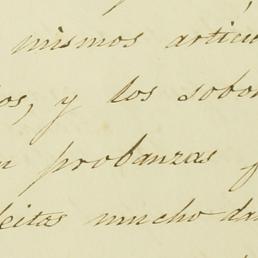 mismos artícu
os, y los sobor
n probanzas f
leitas mucho da